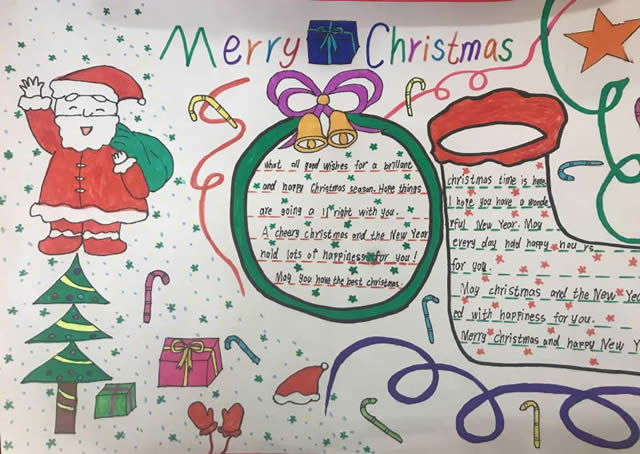 Merry Christmas
what all good wishes for a brilliant
and happy Christmas season. Hope things
are going a ll right with you.
A cheery christmas and the New Year
hold lots of happiness for you!
May you have the best christmas.
christmas time is here.
I hope you have a wonde
rful New Year. May
every day hold happy hou rs
for you.
May christmas and the New Yea
ed with happiness for you.
Merry christmas and happy New Y